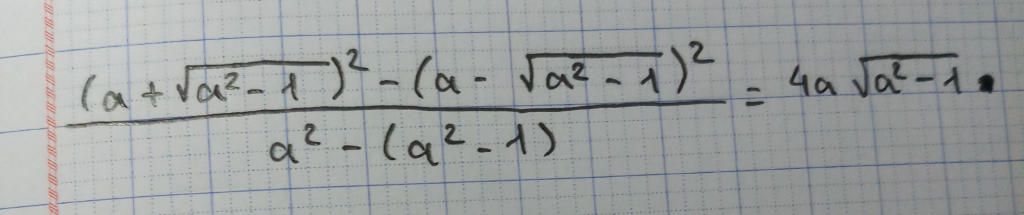 (a + √(a² - 1))² - (a - √(a² - 1))² = 4a √(a² - 1) .
a² - (a² - 1)